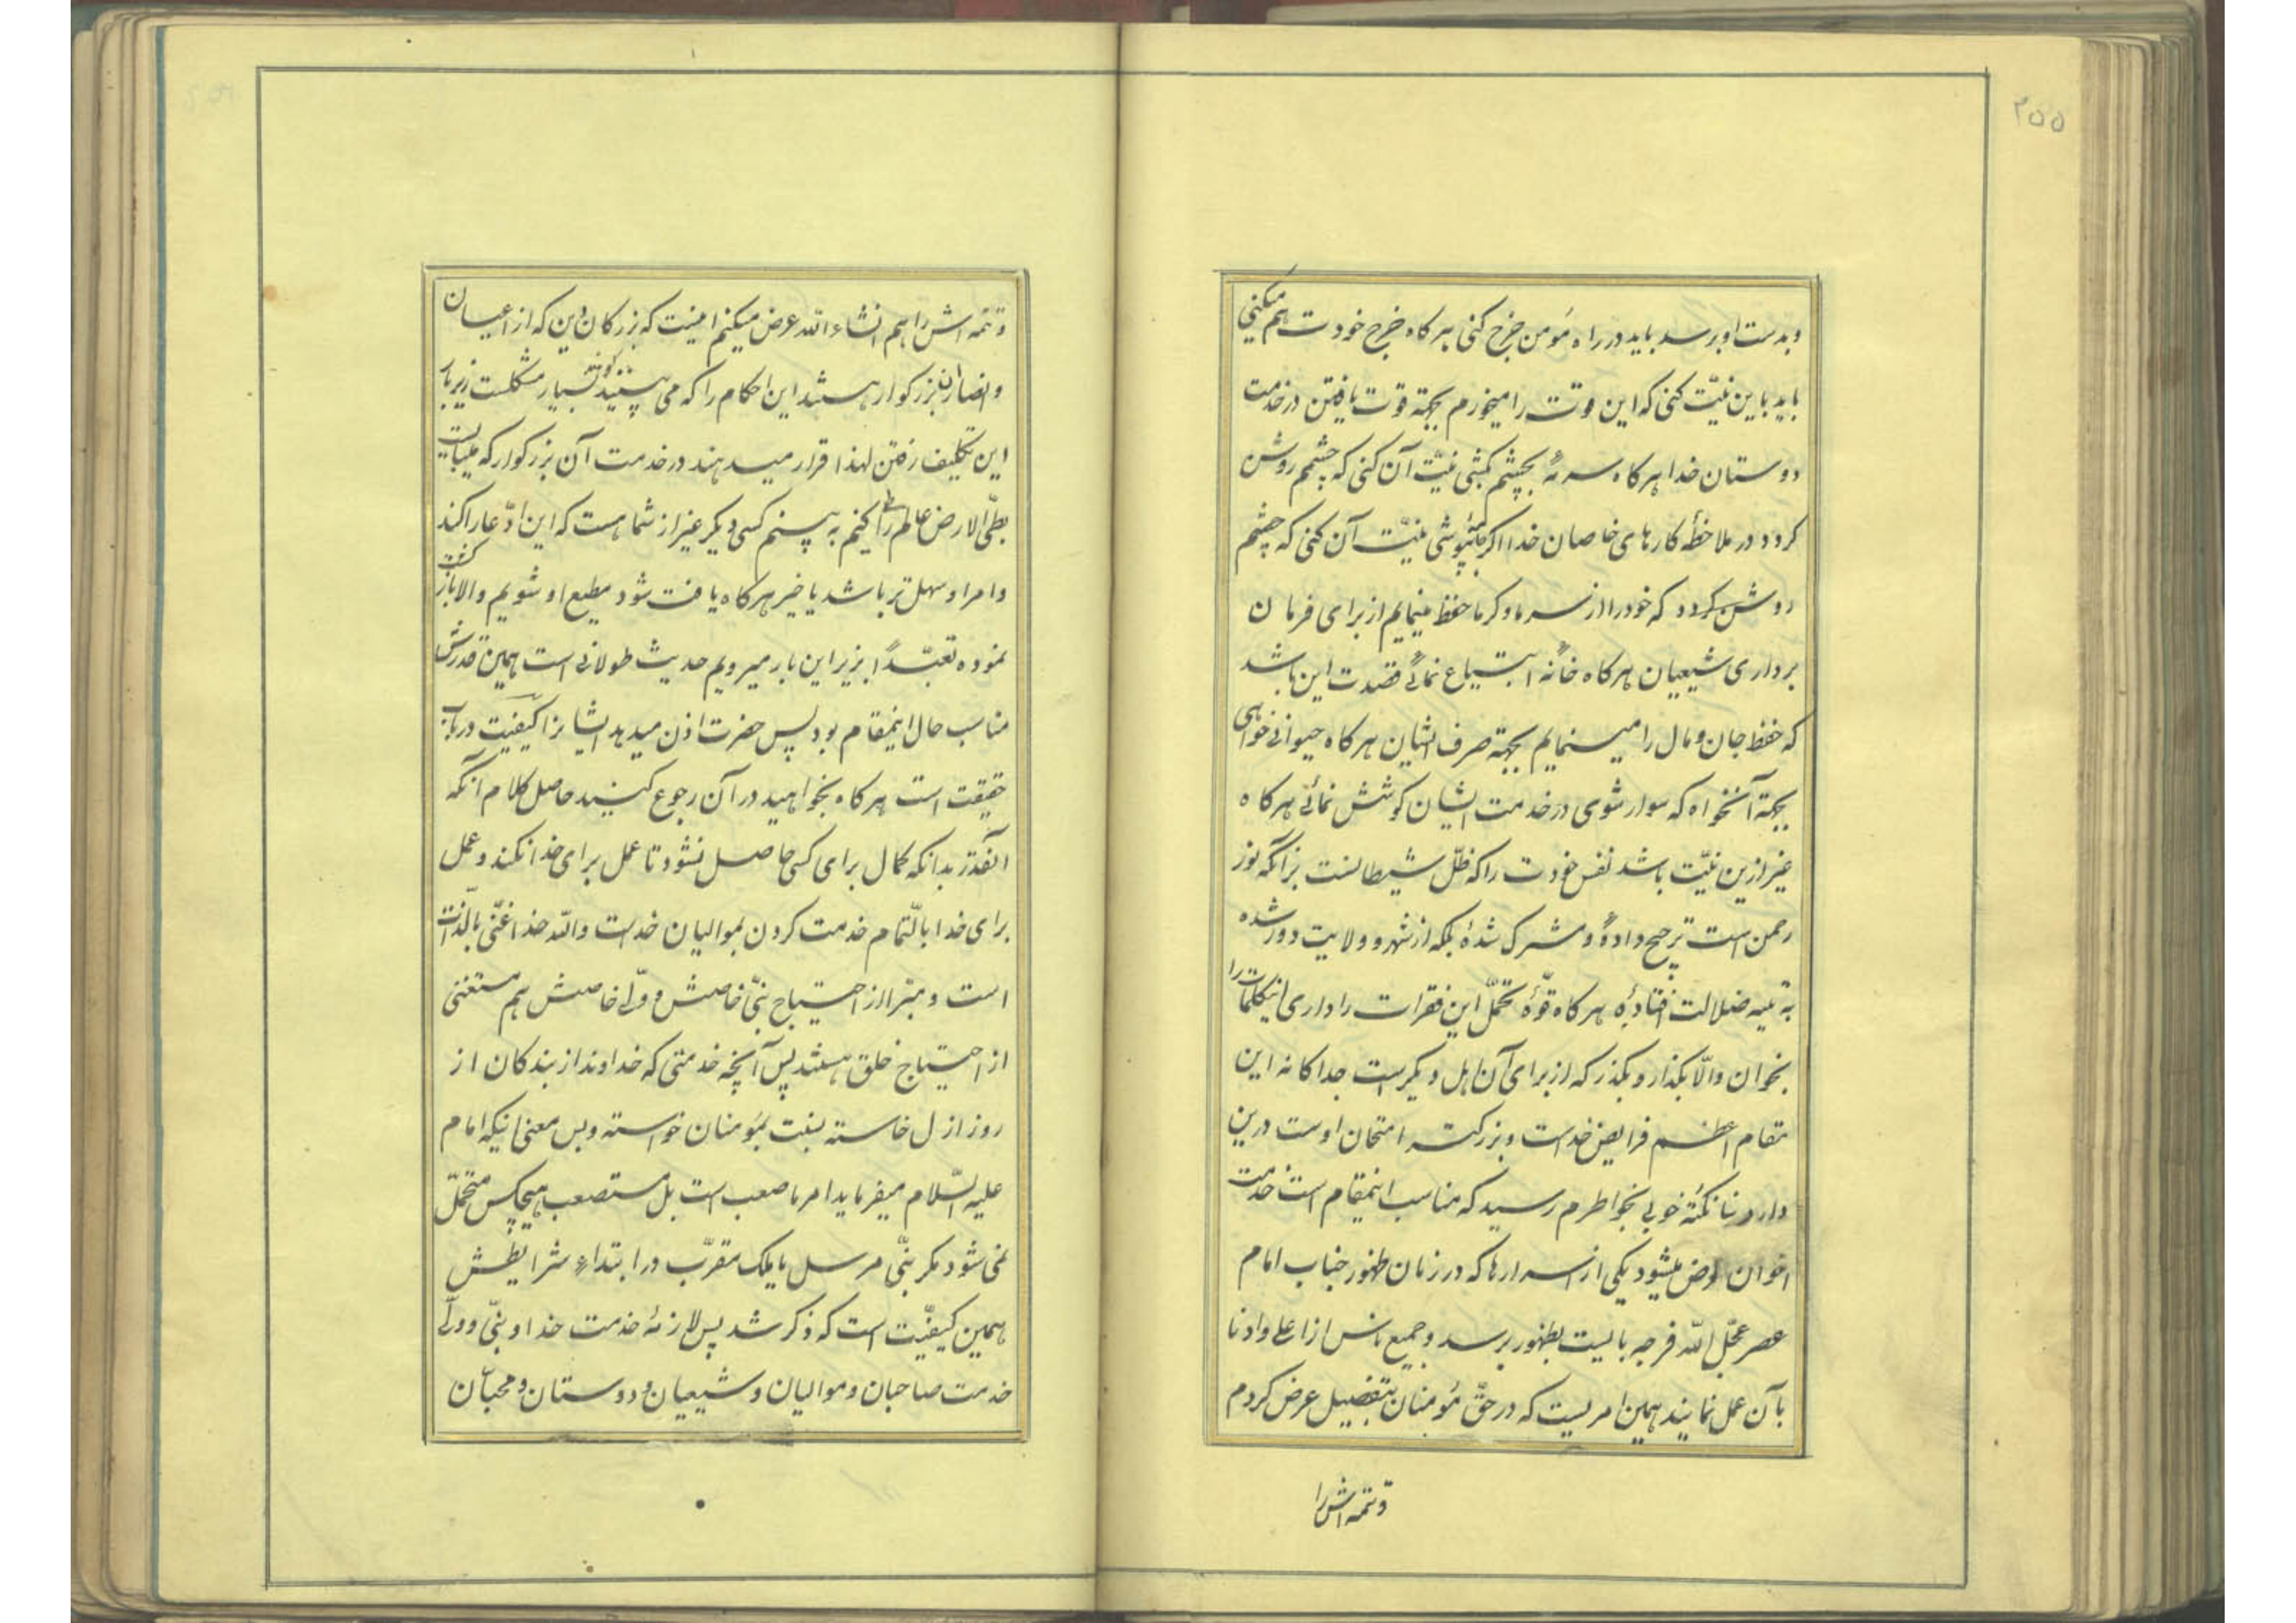 ۲۵۵
و بدست او برسد باید در راه مؤمن خرج کنی هر کاه خرج خودت هم میکنی
باید باین نیّت کنی که این قوت را میخورم بجهتة قوت یافتن در خدمت
دوستان خدا هر کاه سرمهٔ بچشم کشی نیّت آن کنی که چشمم روشن
کردد در ملاحظهٔ کارهای خاصان خدا اکر جامهٔ پوشی نیّت آن کنی که چشم
روشن کردد که خود را از سرما و کرما حفظ مینمایم از برای فرمان
برداری شیعیان هر کاه خانهٔ ابتیاع نمائی قصدت این باشد
که حفظ جان و مال را مینمایم بجهة صرف ایشان هر کاه حیوانی خواهی
بجهة آن خواه که سوار شوی در خدمت ایشان کوشش نمائی هر کاه
غیر ازین نیّت باشد نفس خودت را که ظلّ شیطانست بر آنکه نور
رحمن است ترجیح دادهٔ و مشرک شدهٔ بلکه از شهر و ولایت دور شده
به تیه ضلالت افتادهٔ هر کاه قوّهٔ تحمّل این فقرات را داری اینکلمات را
بخوان والّا بکذار و بکذر که از برای آن اهل دیکر است جدا کانه این
مقام اعظم فرایض خداست و بزرکتر امتحان اوست درین
نکتهٔ خوبی بخاطرم رسید که مناسب اینمقام است خدمت
اخوان عرض میشود یکی از اسرارها که در زمان ظهور جناب امام
عصر عجّل اللّه فرجه بالیست بظهور برسد و جمیع ناس از اعلی و ادنا
بآن عمل نمایند همین امریست که در حقّ مؤمنان بتفضیل عرض کردم
و تتمه اش را
و تتمه اش را هم انشاء اللّه عرض میکنم اینست که بزرکان دین که از اعیان
و انصار آن بزرکوار هستند این احکام را که می بینند کویند بسیار مشکلست زیر بار
این تکلیف رفتن لهذا قرار میدهند در خدمت آن بزرکوار که میبایت
بطیّ الارض عالم را طی کنیم به بینیم کسی دیکر غیر از شما هست که این ادّعا را کند
و امر او سهل تر باشد یا خیر هر کاه یافت شود مطیع او شویم والا بازکشت
نموده تعبّداً بزیر این بار میرویم حدیث طولانی است همین قدرش
مناسب حال اینمقام بود پس حضرت اذن میدهد ایشانرا کیفیّت در باب
حقیقت است هر کاه بخواهید در آن رجوع کنید حاصل کلام آنکه
آنقدر بدانکه کمال برای کسی حاصل نشود تا عمل برای خدا نکند و عمل
برای خدا بالتّمام خدمت کردن بموالیان خداست واللّه خدا غنّی بالذّات
است و مبرّا از احتیاج نبّی خاصش و ولّی خاصش هم مستغنی
از احتیاج خلق هستند پس آنچه خدمتی که خداوند از بندکان از
روز ازل خاسته بنسبت بمؤمنان خواسته و بس معنی اینکه امام
علیه السّلام میفرماید امر ما صعب است بل مستصعب هیچکس متحمّل
نمی شود مکر نبّی مرسل یا ملک مقرّب در ابتداء شرایطش
همین کیفیّت است که ذکر شد پس لازمهٔ خدمت خدا و نبّی و ولّی
خدمت صاحبان و موالیان و شیعیان و دوستان و محبّان